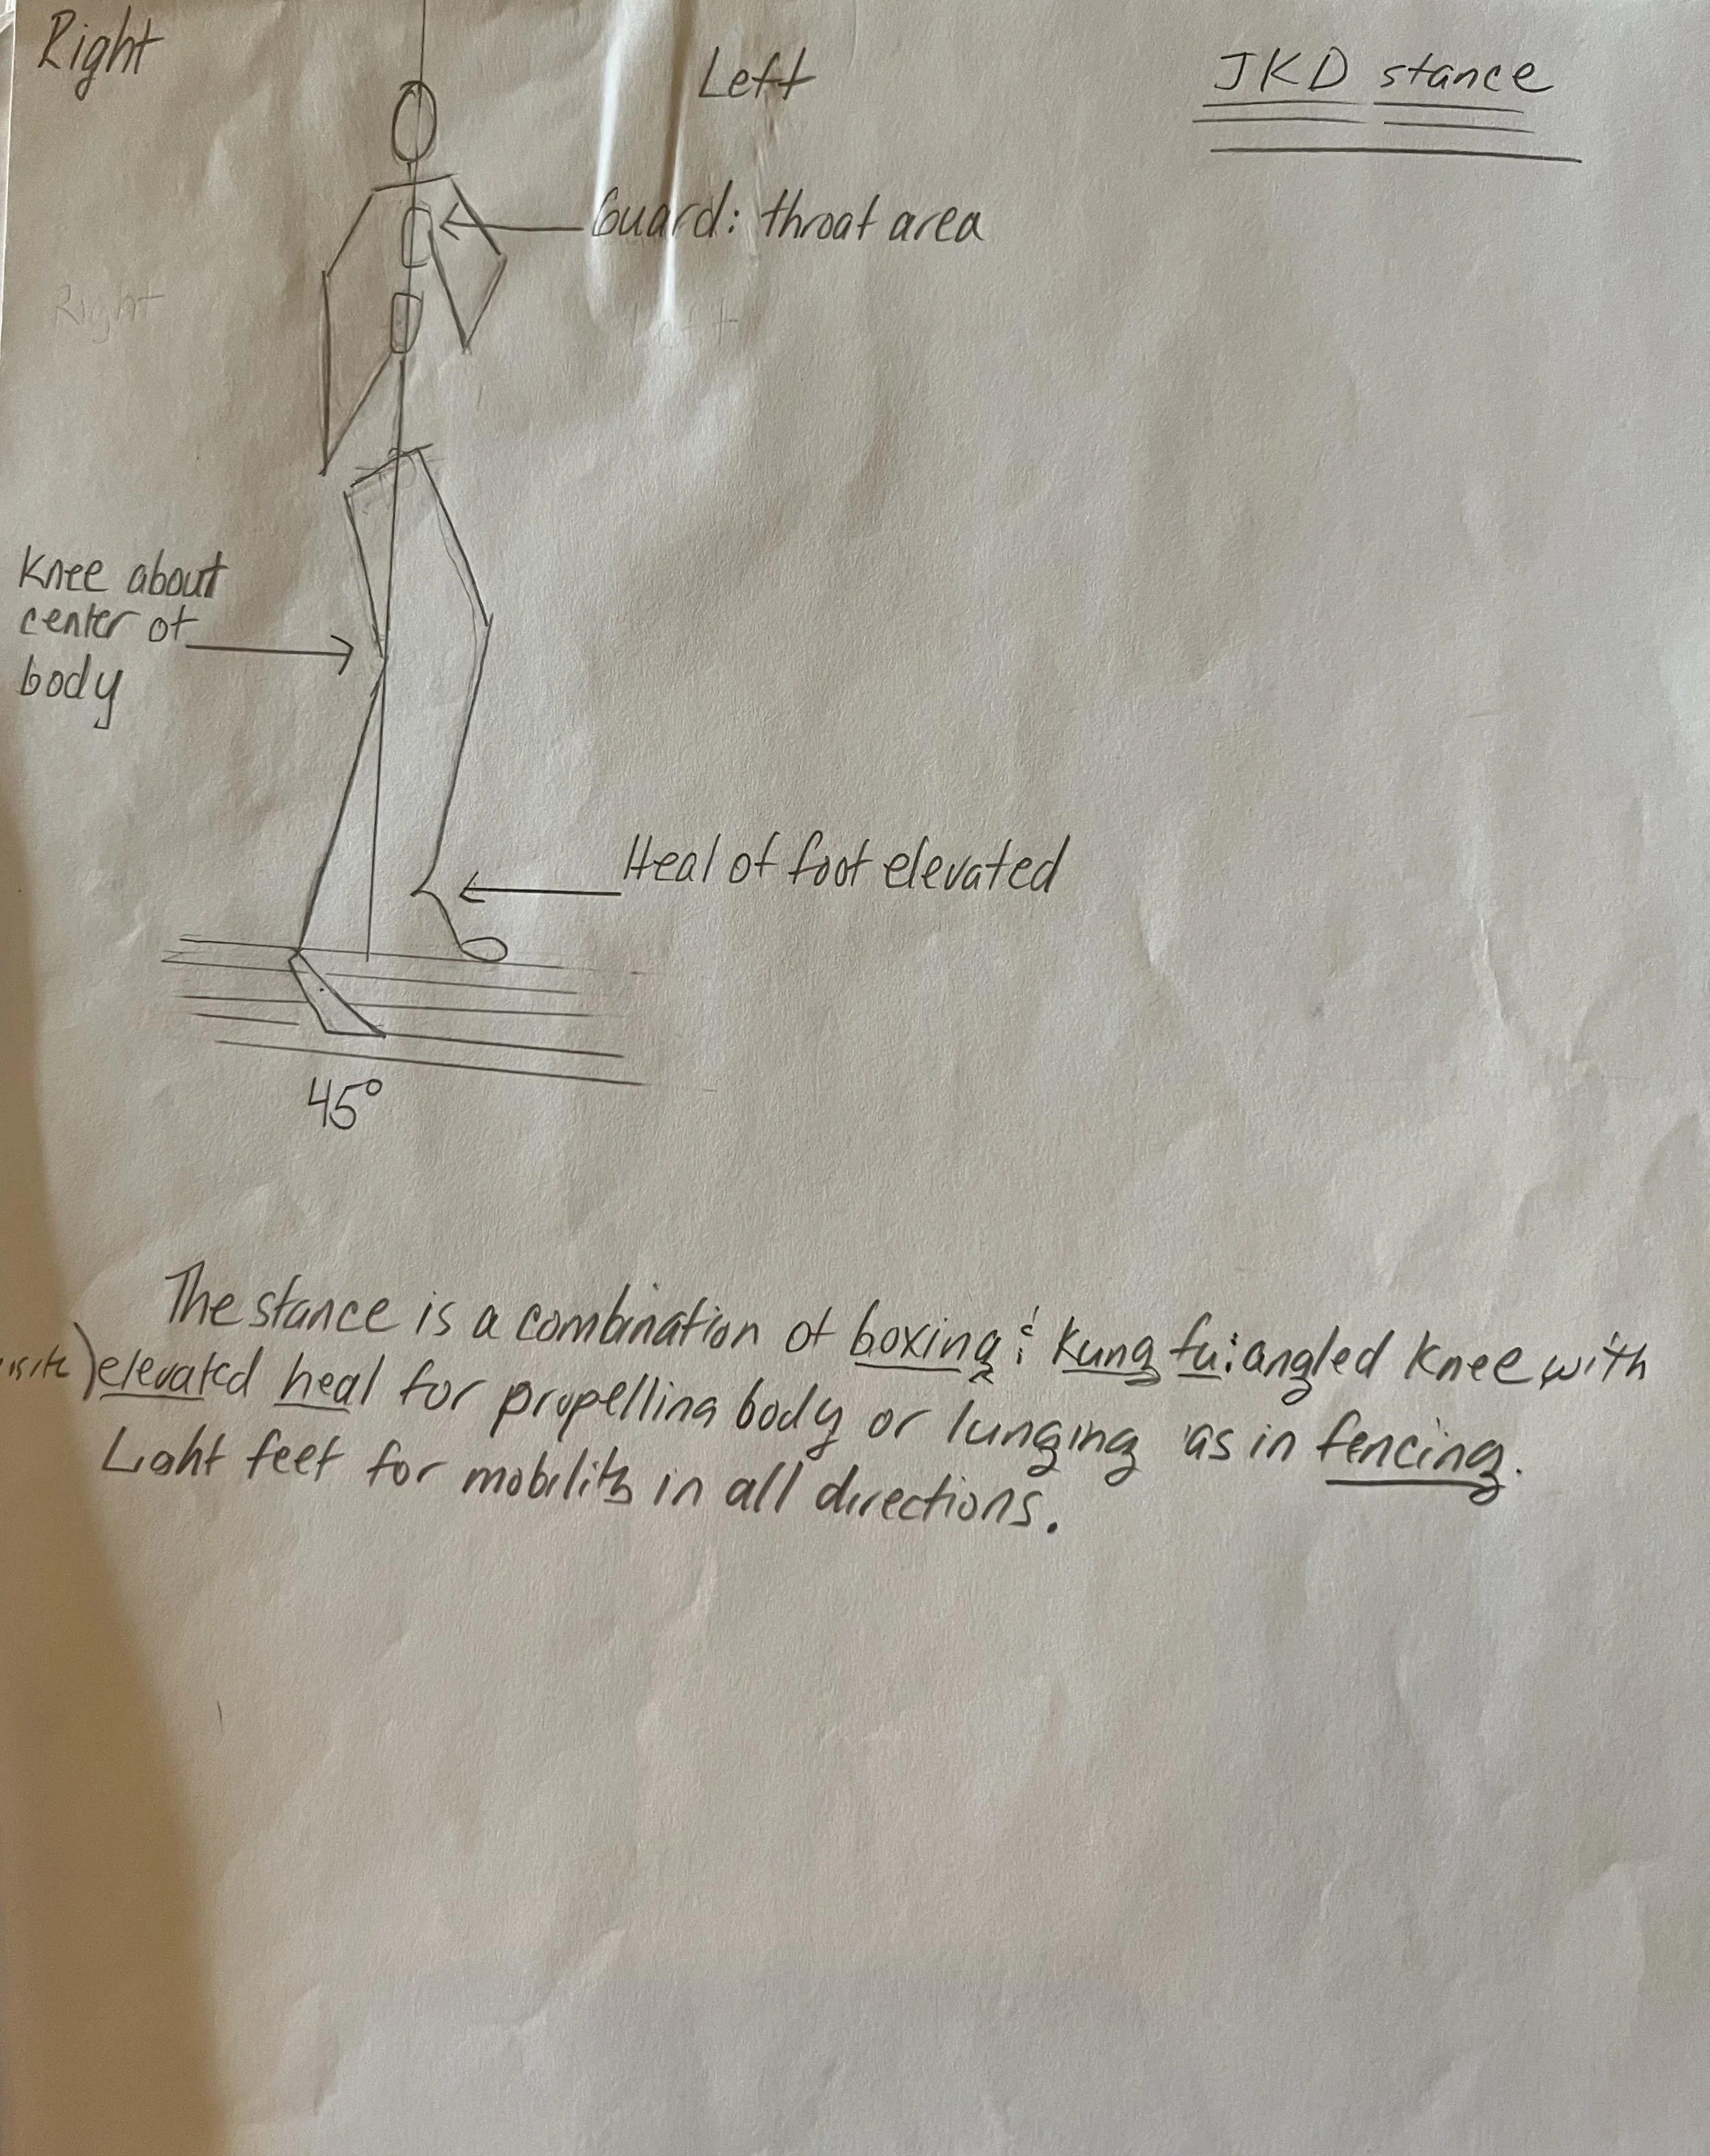 Right
Left
JKD stance
Guard: throat area
Right
Left
Knee about
center of
body
Heal of foot elevated
45°
The stance is a combination of boxing & kung fu: angled knee with
elevated heal for propelling body or lunging as in fencing.
Light feet for mobility in all directions.